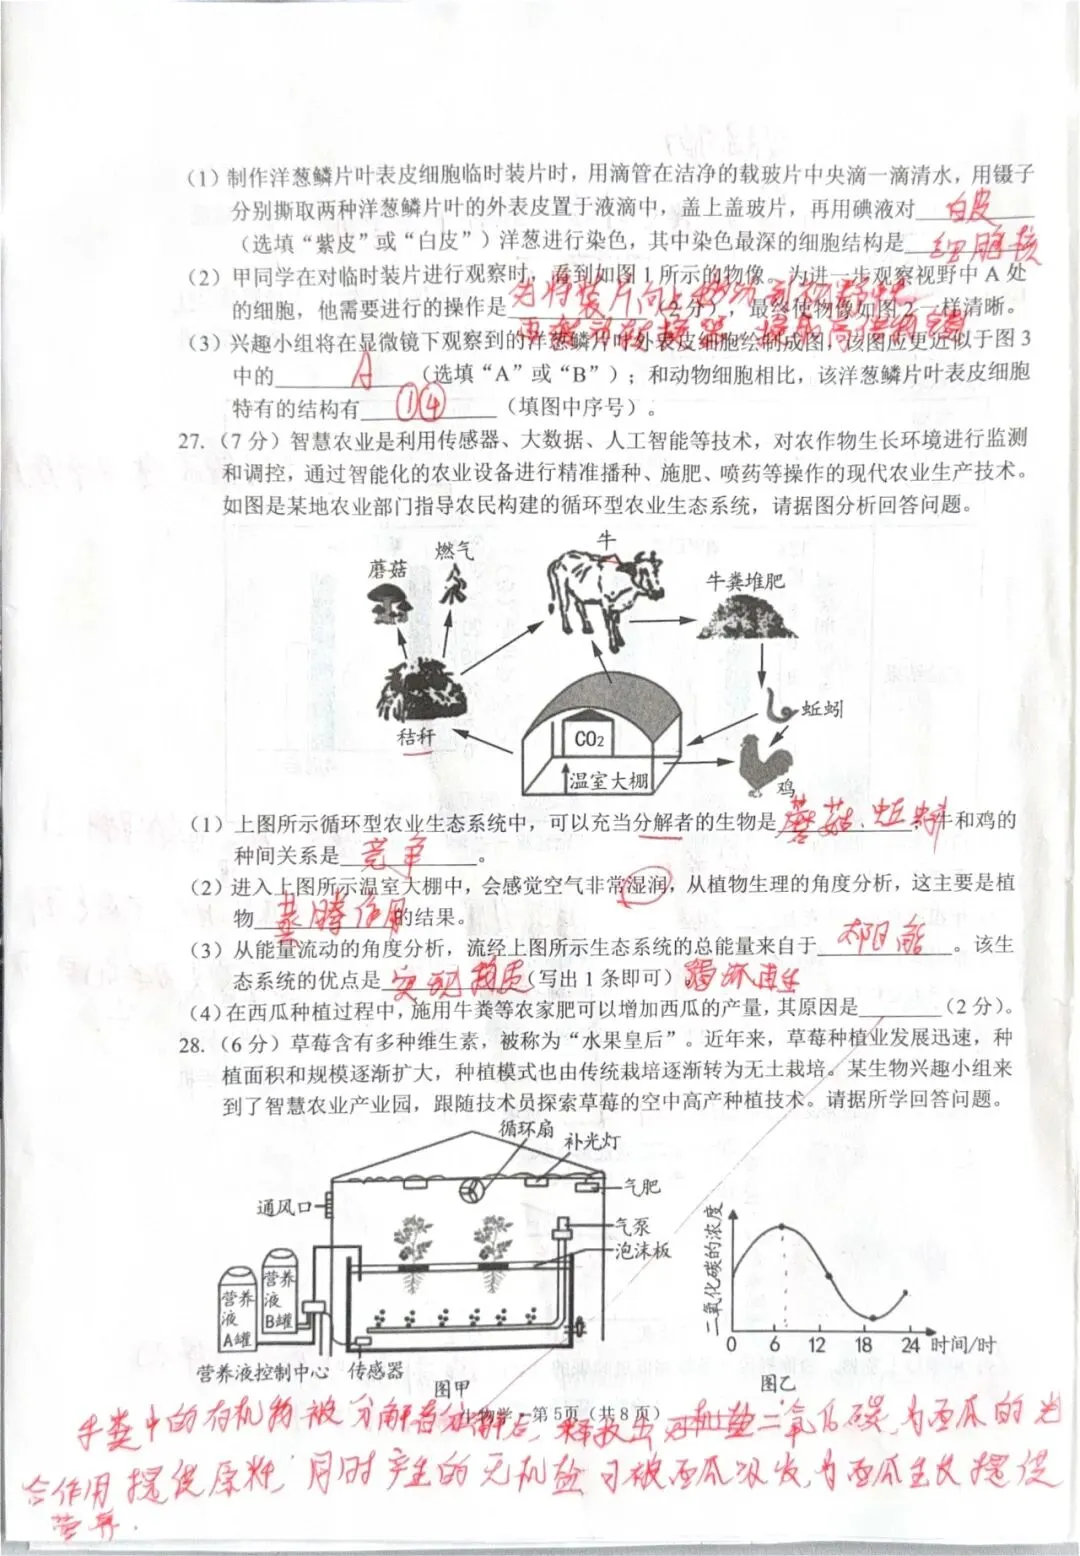 (1)制作洋葱鳞片叶表皮细胞临时装片时，用滴管在洁净的载玻片中央滴一滴清水，用镊子
分别撕取两种洋葱鳞片叶的外表皮置于液滴中，盖上盖玻片，再用碘液对 白皮
（选填“紫皮”或“白皮”）洋葱进行染色，其中染色最深的细胞结构是 细胞核
(2)甲同学在对临时装片进行观察时，看到如图1所示的物像。为进一步观察视野中A处
的细胞，他需要进行的操作是 （2分），最终使物像如图2一样清晰。
(3)兴趣小组将在显微镜下观察到的洋葱鳞片叶外表皮细胞绘制成图，该图应更近似于图3
中的 A （选填“A”或“B”）；和动物细胞相比，该洋葱鳞片叶表皮细胞
特有的结构有 ①④ （填图中序号）。
27.（7分）智慧农业是利用传感器、大数据、人工智能等技术，对农作物生长环境进行监测
和调控，通过智能化的农业设备进行精准播种、施肥、喷药等操作的现代农业生产技术。
如图是某地农业部门指导农民构建的循环型农业生态系统，请据图分析回答问题。
燃气
牛
蘑菇
牛粪堆肥
蚯蚓
秸秆
CO₂
温室大棚
鸡
(1)上图所示循环型农业生态系统中，可以充当分解者的生物是 蘑菇、 ，牛和鸡的
种间关系是 竞争 。
(2)进入上图所示温室大棚中，会感觉空气非常湿润，从植物生理的角度分析，这主要是植
物 蒸腾作用 的结果。
(3)从能量流动的角度分析，流经上图所示生态系统的总能量来自于 。该生
态系统的优点是 实现物质（写出1条即可）循环再生
(4)在西瓜种植过程中，施用牛粪等农家肥可以增加西瓜的产量，其原因是 （2分）。
28.（6分）草莓含有多种维生素，被称为“水果皇后”。近年来，草莓种植业发展迅速，种
植面积和规模逐渐扩大，种植模式也由传统栽培逐渐转为无土栽培。某生物兴趣小组来
到了智慧农业产业园，跟随技术员探索草莓的空中高产种植技术。请据所学回答问题。
循环扇
补光灯
气肥
通风口
气泵
泡沫板
营养液A罐
营养液B罐
营养液控制中心
传感器
图甲
二氧化碳的浓度
0 6 12 18 24 时间/时
图乙
生物学 第5页（共8页）
牛粪中的有机物被分解者分解后，释放出二氧化碳，为西瓜的光
合作用提供原料，同时产生的无机盐可被西瓜吸收，为西瓜生长提供
营养．